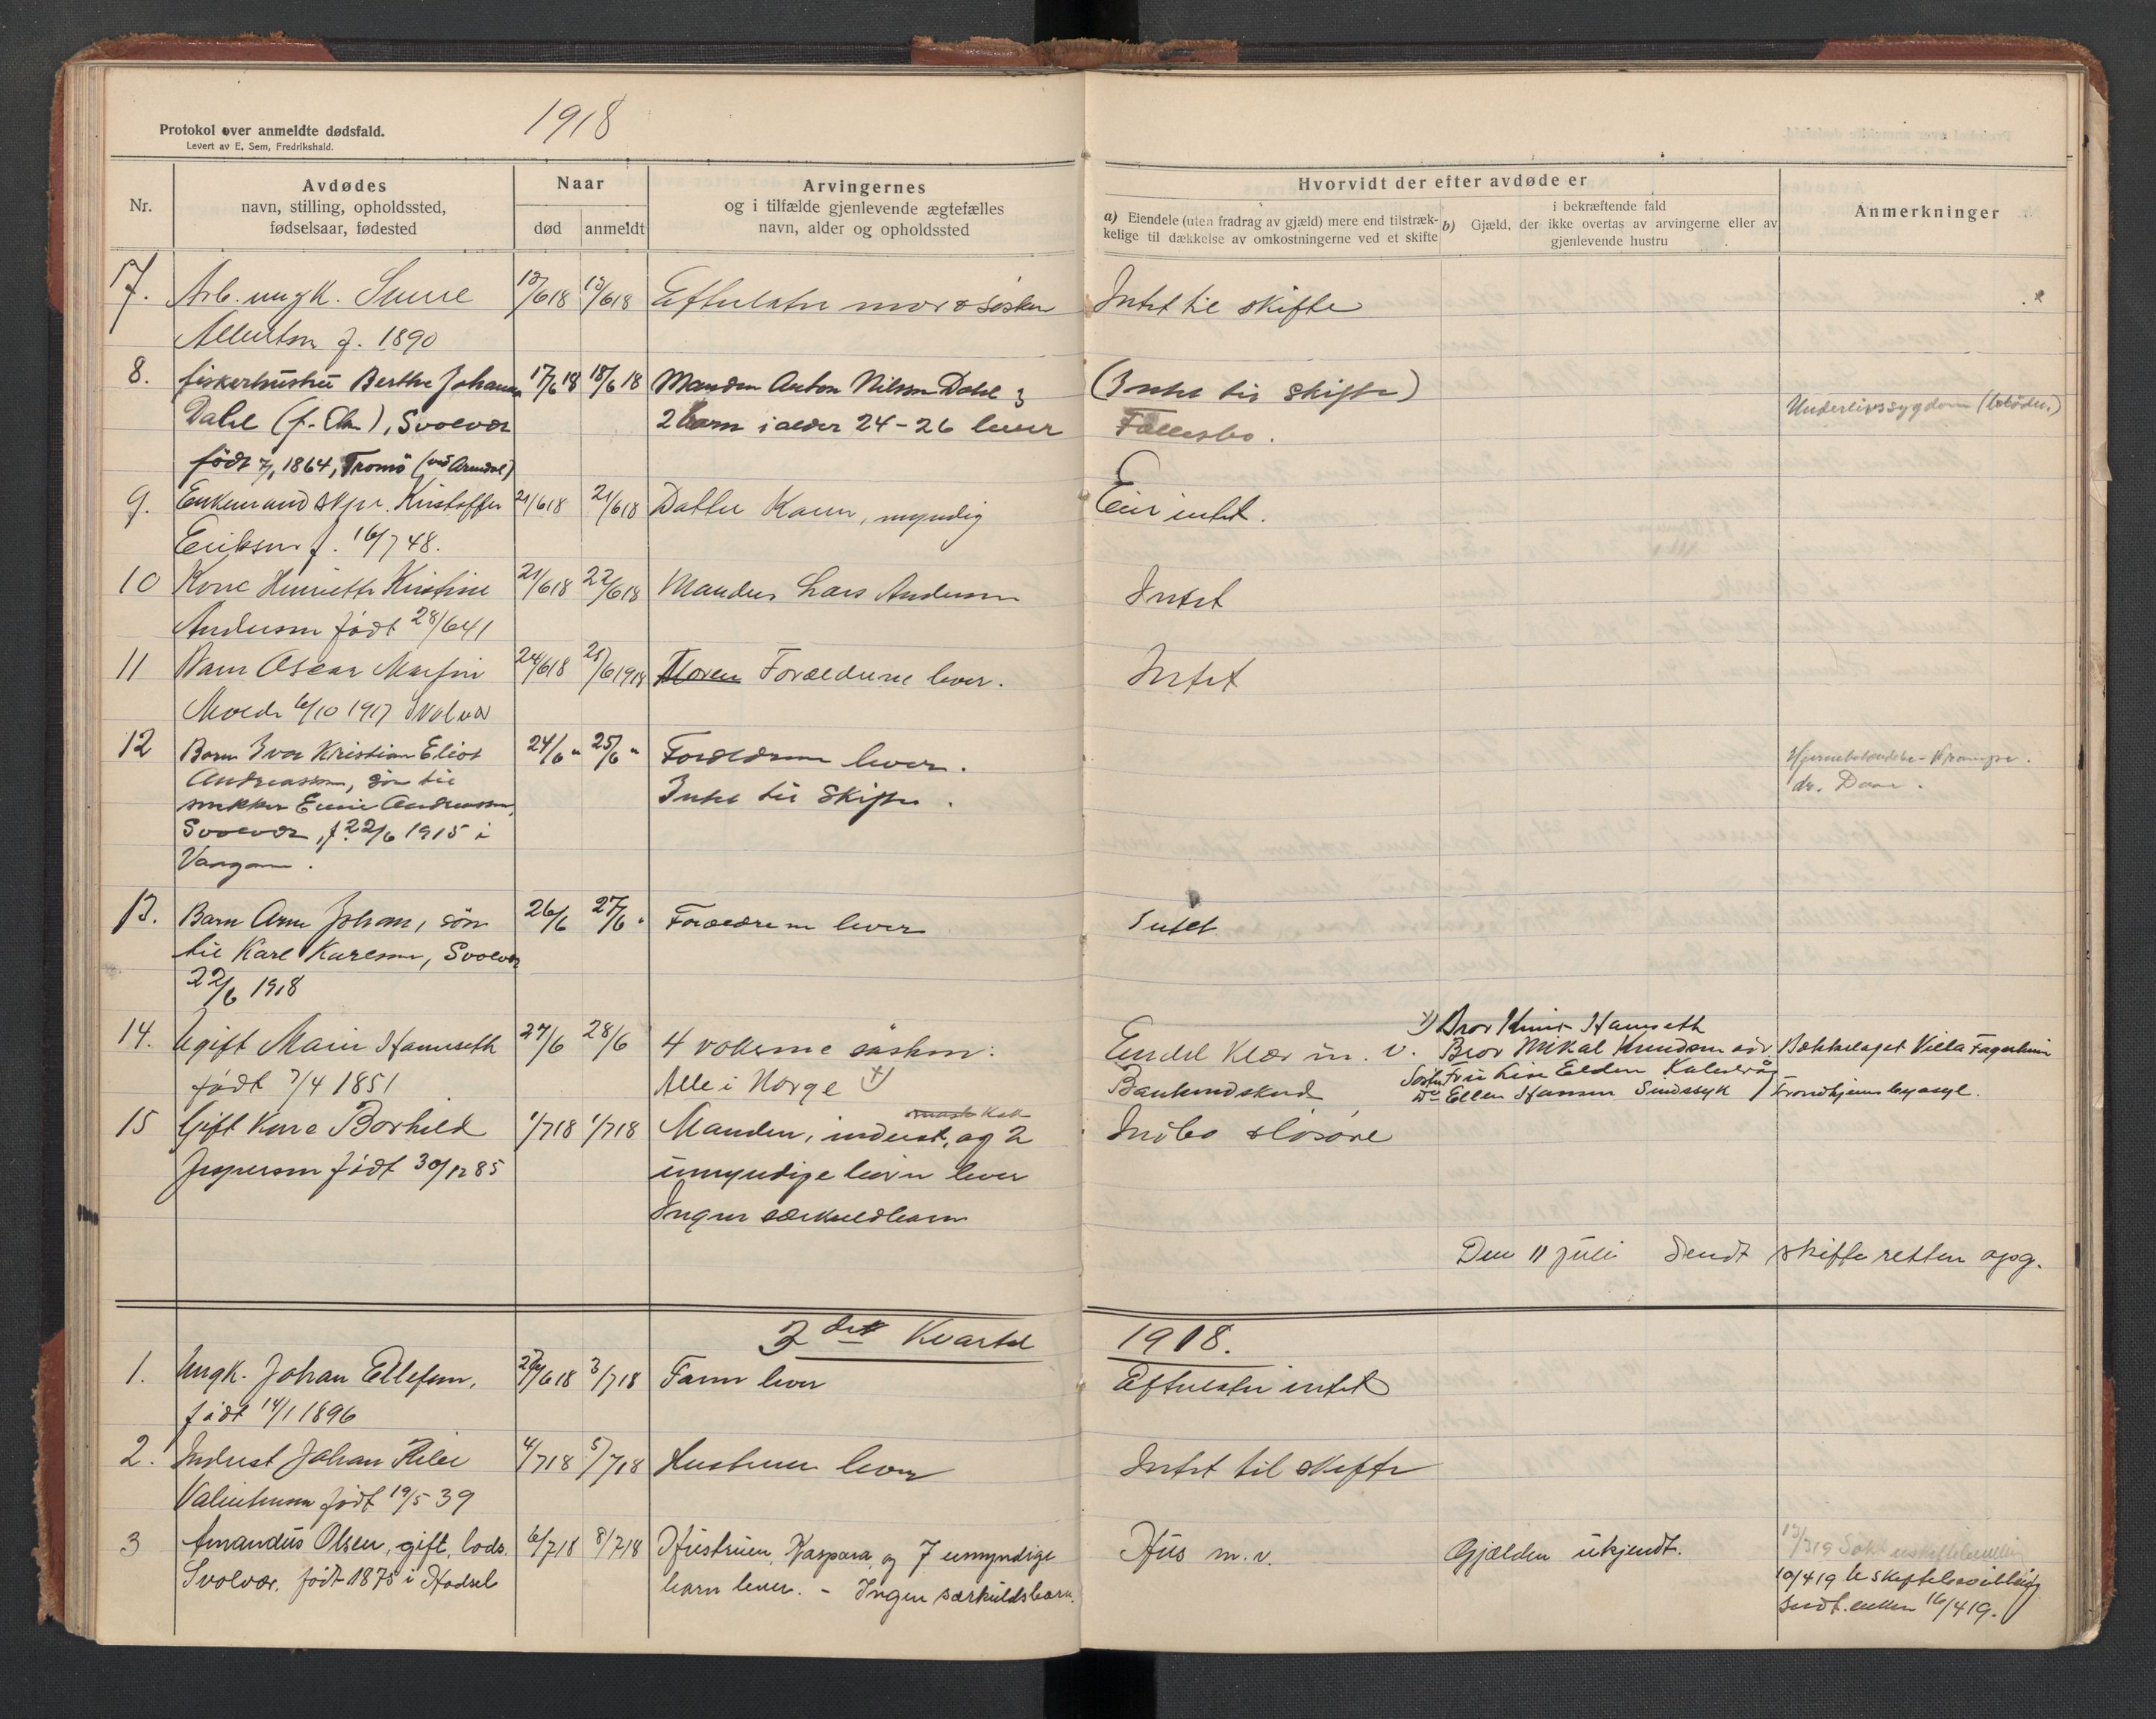 1918
Protokol over anmeldte dødsfald.
Levert av E. Sem, Fredrikshald.
Nr.
Avdødes
navn, stilling, opholdssted,
fødselsaar, fødested
Naar
død
anmeldt
Arvingernes
og i tilfælde gjenlevende ægtefælles
navn, alder og opholdssted
Hvorvidt der efter avdøde er
a) Eiendele (uten fradrag av gjæld) mere end tilstræk-
kelige til dækkelse av omkostningerne ved et skifte
i bekræftende fald
b) Gjæld, der ikke overtas av arvingerne eller av
gjenlevende hustru
Anmerkninger
7. Arb. ungk. 13/6 18 13/6 18 Efterlater mor & søsken Intet til skifte
f. 1890
8. fiskerhustru Berthe Johanne 17/6 18 18/6 18 Manden Anton Nilssen Dahl & (Intet til skifte)
Dahl (f. ), Svolvær 2 barn i alder 24-26 lever Fællesbo. Underlivssygdom
født 7/1 1864, Tromö (ved Arendal)
9. Enkemand skpr. Kristoffer 21/6 18 21/6 18 Datter Karen, myndig Eier intet.
Eriksen f. 16/7 48.
10 Kone Henriette Kristine 21/6 18 22/6 18 Manden Lars Andersen Intet
Andersen født 28/6 41
11 Barn Oscar Martin 24/6 18 25/6 1918 Moren Forældrene lever. Intet
6/10 1917 Svolvær
12 Barn Ivar Kristian Eliot 24/6 " 25/6 " Forældrene lever.
Andreassen, søn til Intet til Skifte.
snekker Andreassen, dr. Daae.
Svolvær, f. 22/6 1915 i
Vaagan.
13. Barn Arne Johan, søn 26/6 27/6 " Forældrene lever Intet
til Karl Karlsen, Svolvær
22/6 1918
14. Ugift Marie Hamseth 27/6 28/6 4 voksne søsken: Eiendel Klær m. v.
født 7/4 1851 Alle i Norge x) Bankindskud
x) Bror Hamseth
Bror Mikal Knudsen adr. Bækkelaget Villa Fagerheim
Søster Fru Lise Elden
Do Ellen Hansen Sindssyk / Trondhjems bysasyl.
15 Gift Kone Borhild 1/7 18 1/7 18 Manden, inderst, og 2 Indbo & løsøre
Jespersen født 30/12 85 umyndige børn lever
Ingen særkuldbarn
Den 11 juli Sendt skifteretten opg.
3 dett Kvartal 1918.
1. Ungk. Johan Ellefsen, 27/6 18 3/7 18 Faren lever Efterlater intet
født 14/1 1896
2. Inderst Johan 4/7 18 5/7 18 Hustruen lever Intet til skifte
Valentinsen født 19/5 39
3 Amandus Olsen, gift, lods. 6/7 18 8/7 18 Hustruen, Kaspara, og 7 umyndige Hus m. v. Gjælden ukjendt.
Svolvær, født 1875 i Hadsel barn lever. - Ingen særkuldsbarn.
13/3 19 Søkt uskiftebevilling
10/4 19 uskiftebevilling
sendt enken 16/4 19.